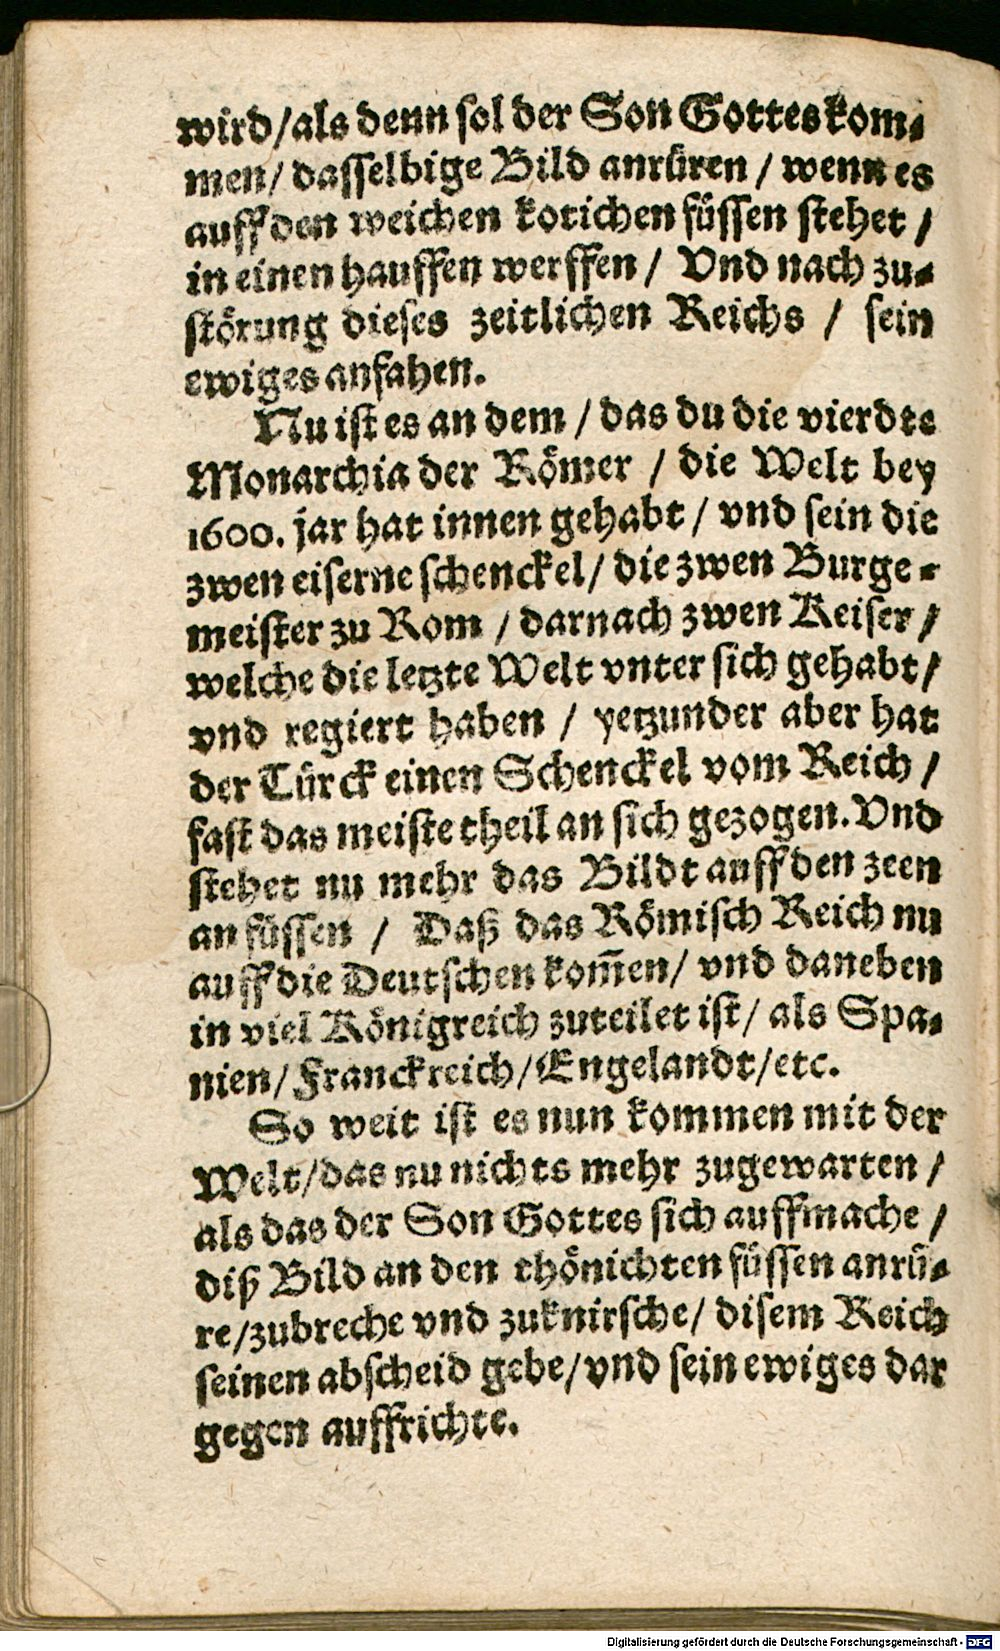 wird/als denn sol der Son Gottes kom⸗
men/ dasselbige Bild anrüren / wenn es
auff den weichen kotichen füssen stehet /
in einen hauffen werffen / Vnd nach zu⸗
störung dieses zeitlichen Reichs / sein
ewiges anfahen.
Nu ist es an dem / das du die vierdte
Monarchia der Römer / die Welt bey
1600. jar hat innen gehabt / vnd sein die
zwen eiserne schenckel/ die zwen Burge⸗
meister zu Rom / darnach zwen Keiser /
welche die letzte Welt vnter sich gehabt/
vnd regiert haben / yetzunder aber hat
der Türck einen Schenckel vom Reich /
fast das meiste theil an sich gezogen. Vnd
stehet nu mehr das Bildt auff den zeen
an füssen / Daß das Römisch Reich nu
auff die Deutschen kom̄en/ vnd daneben
in viel Königreich zuteilet ist/ als Spa⸗
nien/ Franckreich/ Engelandt/etc.
So weit ist es nun kommen mit der
Welt/das nu nichts mehr zugewarten /
als das der Son Gottes sich auffmache /
diß Bild an den thönichten füssen anrü⸗
re/zubreche vnd zuknirsche/ disem Reich
seinen abscheid gebe/vnd sein ewiges dar
gegen auffrichte.
Digitalisierung gefördert durch die Deutsche Forschungsgemeinschaft - DFG